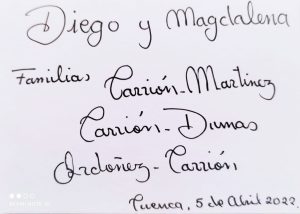 Diego y Magdalena
Familias Carrión-Martinez
Carrión-Dumas
Ordoñez-Carrión
Cuenca, 5 de Abril 2022.